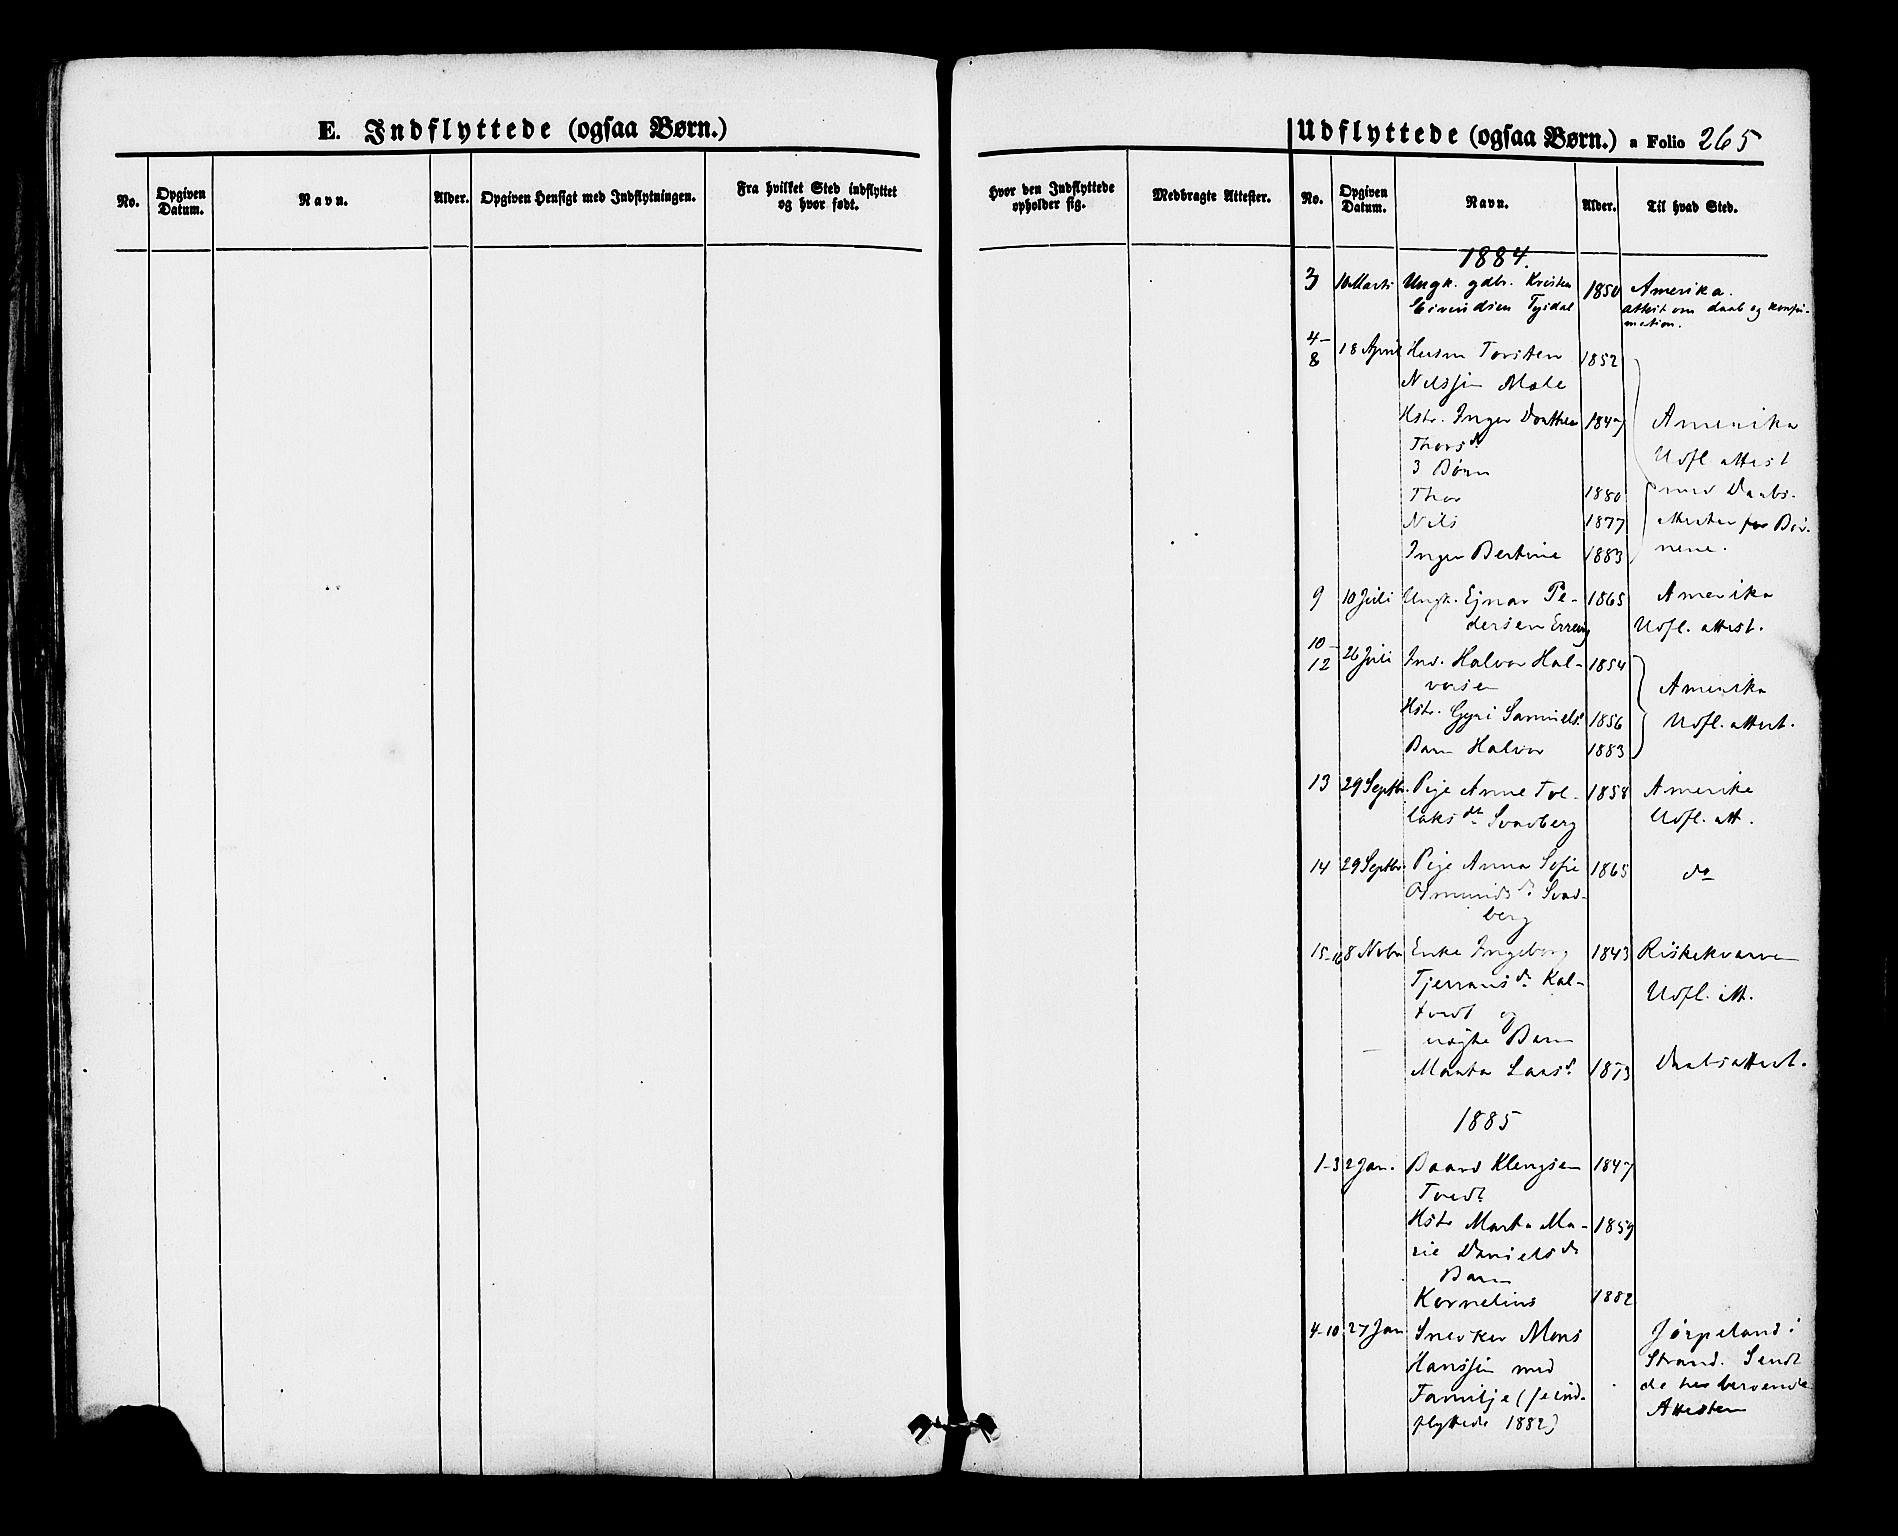 E. Indflyttede (ogsaa Børn.)
No.
Opgiven
Datum.
Navn.
Alder.
Opgiven Hensigt med Indflytningen.
Fra hvilket Sted indflyttet
og hvor født.
Hvor den Indflyttede
opholder sig.
Medbragte Attester.
Udflyttede (ogsaa Børn.) a Folio 265
No.
Opgiven
Datum.
Navn.
Alder.
Til hvad Sted.
1884.
3 10 Marts Ungk. gdbr. 1850 Amerika.
Eivindsen Tysdal attest om daab og konfir-
mation.
4-
8 18 April Husm Torsten 1852
Nilssen Mæle
Hstr. Inger Dorthea 1847 Amerika
Thorsd. Udfl. attest
3 Børn
Thor 1880 med Daabs-
Nils 1877 attester for Bør-
Inger Bertine 1883 nene.
9 10 Juli Ungk. Ejnar Pe- 1865 Amerika
dersen Udfl. attest.
10-
12 26 Juli Ind. Halvor Hal- 1854
vorsen Amerika
Hstr. Gyri Samuelsd. 1856 Udfl. attest.
Barn Halvor 1883
13 29 Septbr. Pige Anne Tol- 1858 Amerika
laksdtr. Svadberg Udfl. att.
14 29 Septbr. Pige Anna Sofie 1865 do
Osmundsdr. Svad-
berg
15-16 8 Novbr Enke Ingeborg 1843 Riskekværven
Tjerransdr. Kal-
tvedt og Udfl. att.
uægte Barn
Marta Larsd. 1873 Daabsattest.
1885
1-3 2 Jan. Baard Klengsen 1847
Tvedt
Hstr Marta Ma- 1859
rie Danielsdr
Barn
Kornelius 1882
4-10 27 Jan Snedker Mons Jørpeland i
Hanssen med Strand. Sendt
Familje (se ind- de her beroende
flyttede 1882) Attester